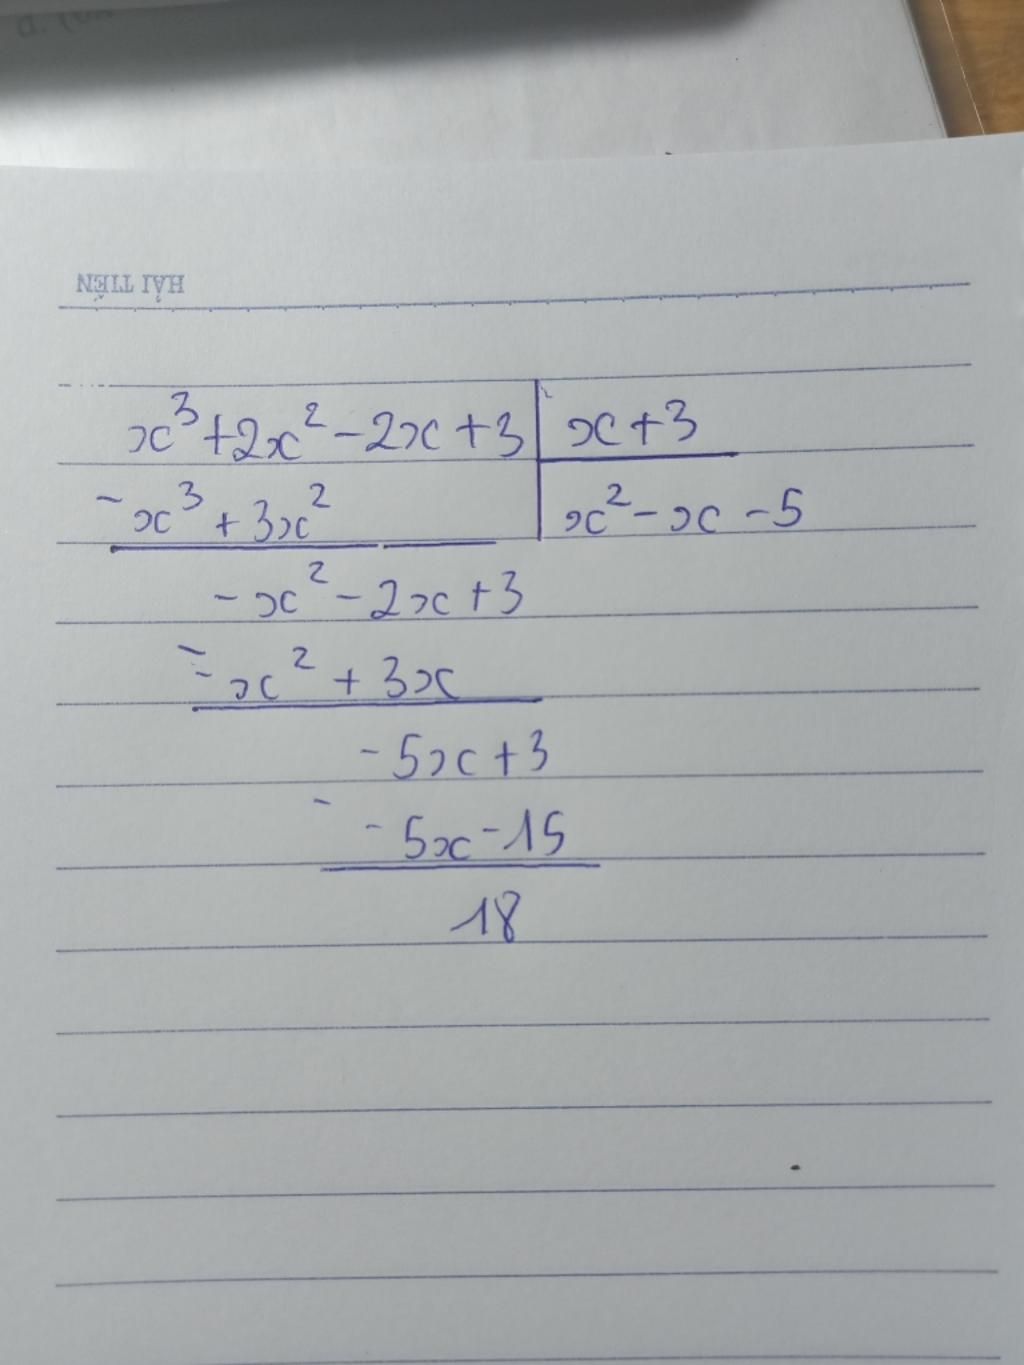 HẢI TIẾN
x³ + 2x² - 2x + 3 | x + 3
- x³ + 3x² | x² - x - 5
- x² - 2x + 3
- - x² + 3x
- 5x + 3
- - 5x - 15
18